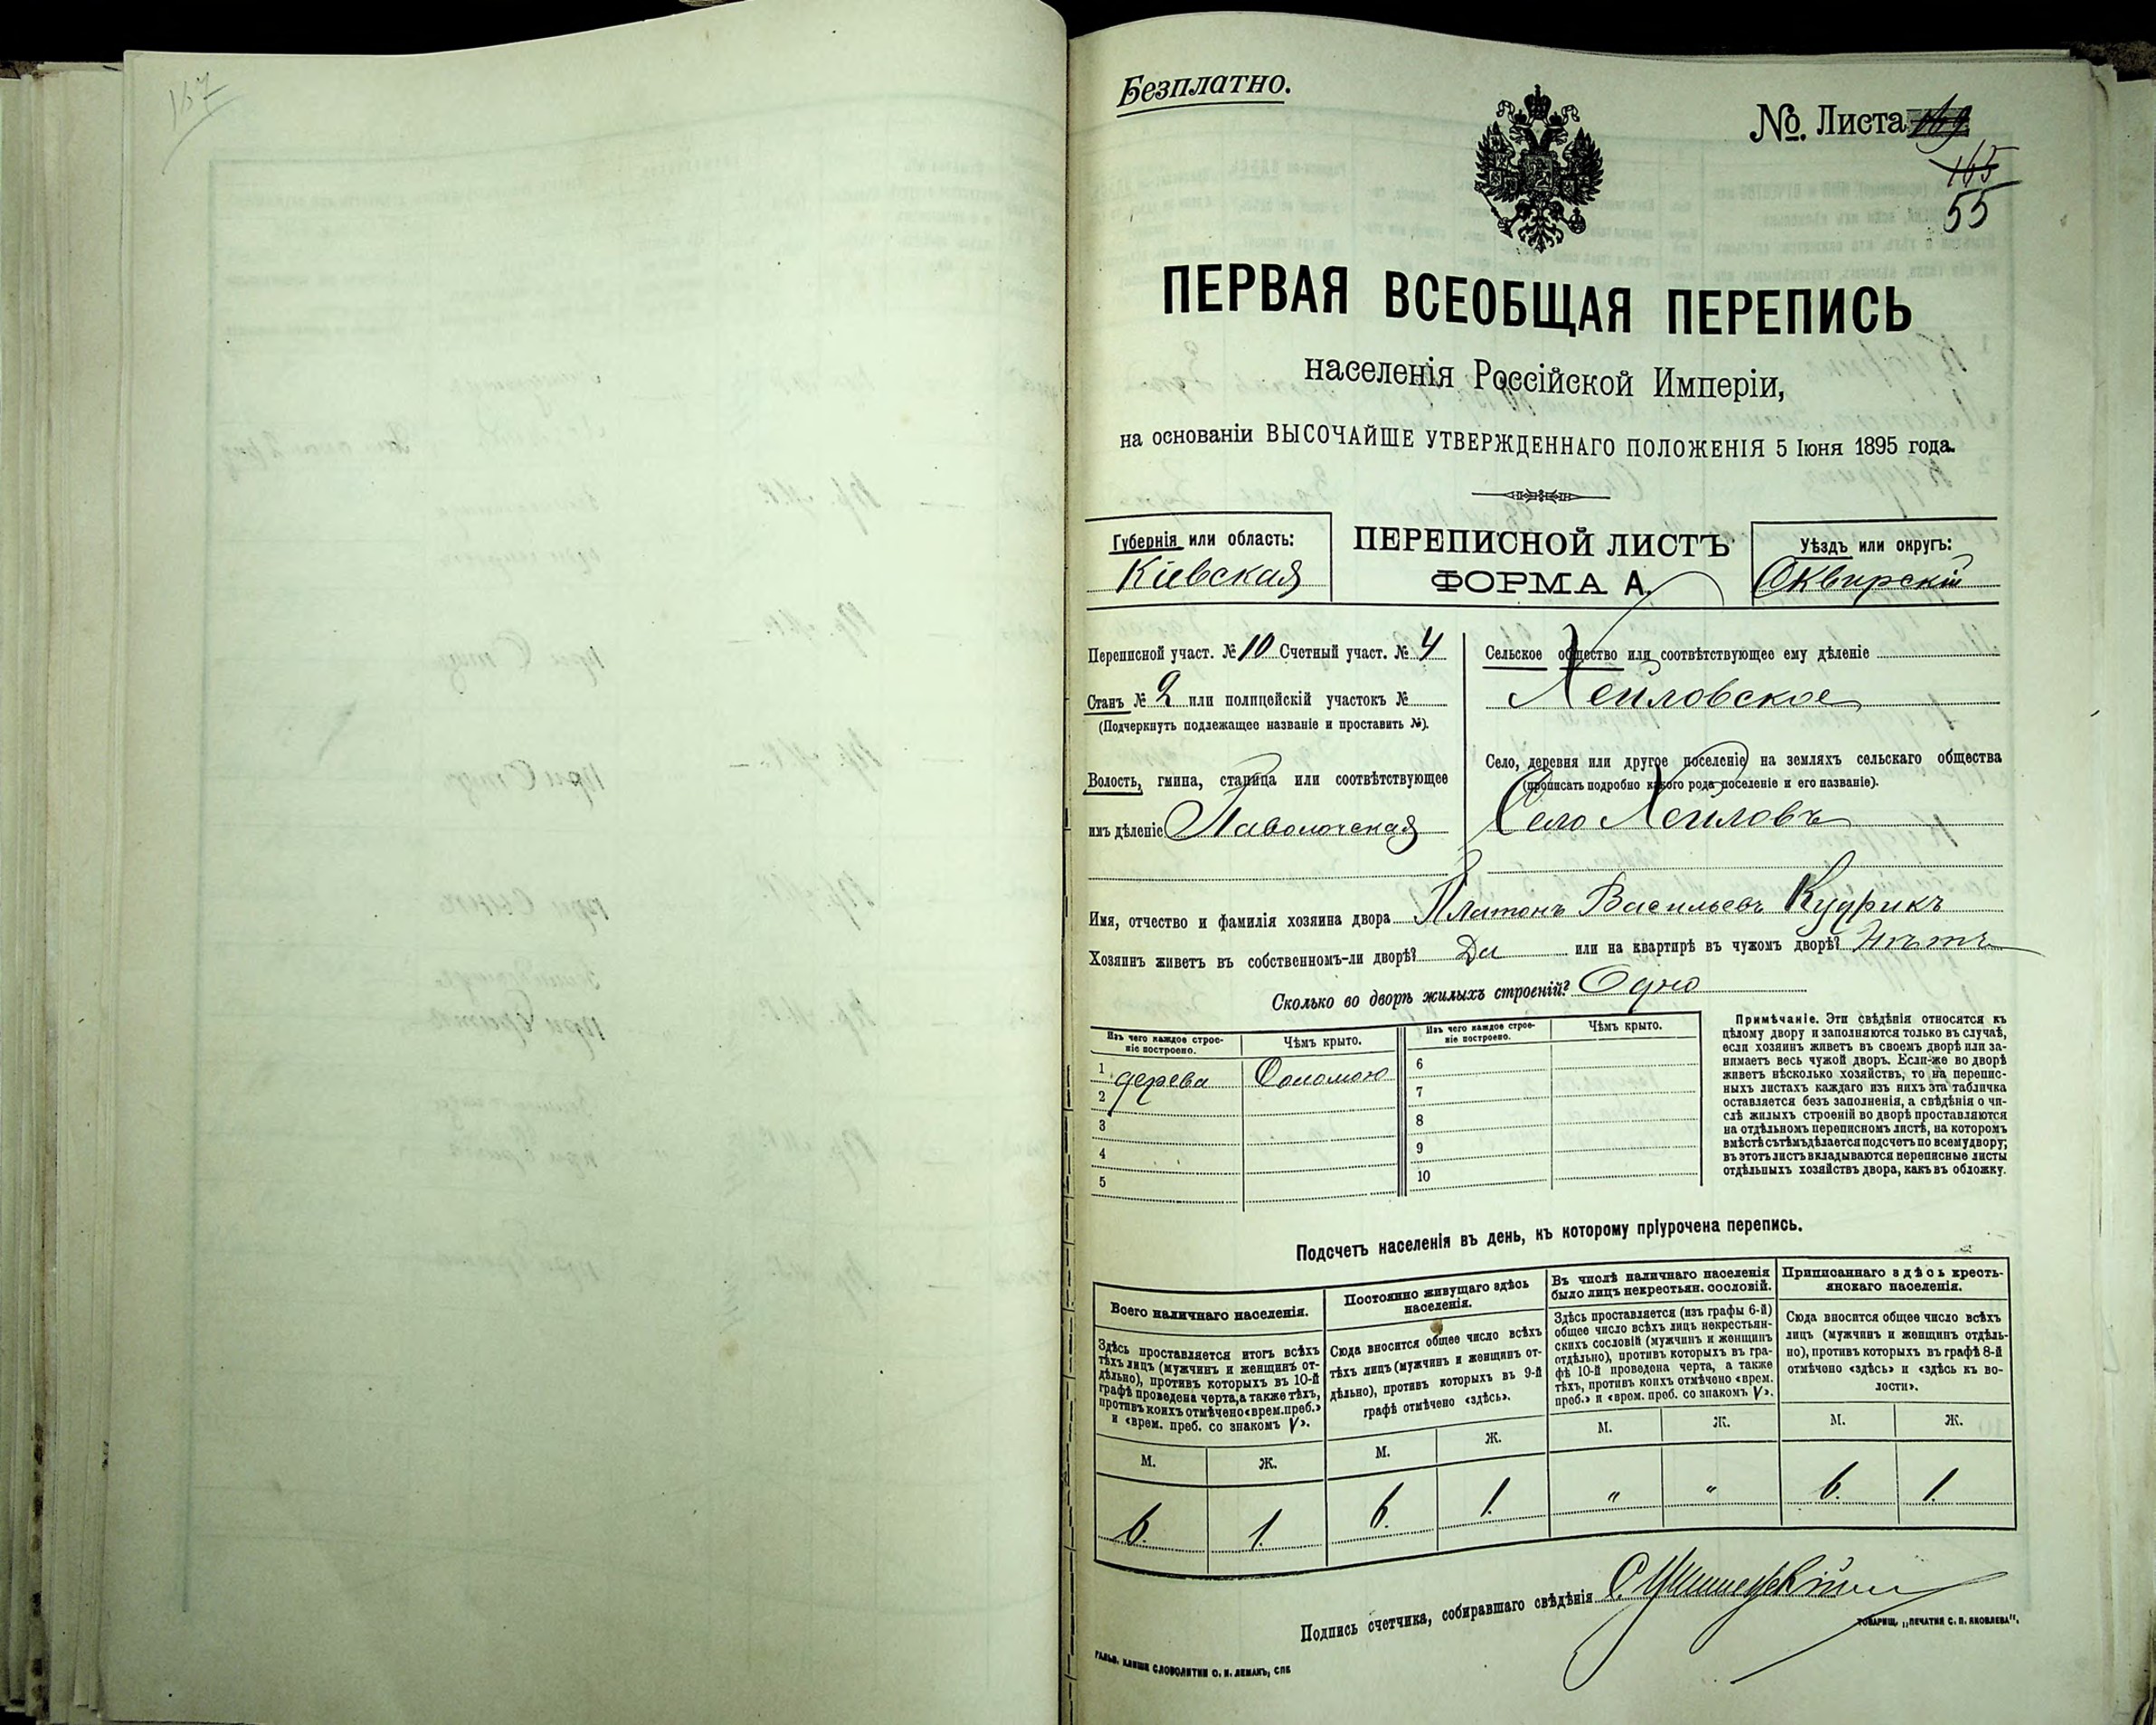 167
Безплатно.
№. Листа 169
165
55
ПЕРВАЯ ВСЕОБЩАЯ ПЕРЕПИСЬ
населенія Россійской Имперіи,
на основаніи ВЫСОЧАЙШЕ УТВЕРЖДЕННАГО ПОЛОЖЕНІЯ 5 Іюня 1895 года.
Губернія или область:
Кіевская
ПЕРЕПИСНОЙ ЛИСТЪ
ФОРМА А.
Уѣздъ или округъ:
Сквирскій
Переписной участ. № 10 Счетный участ. № 4
Станъ № 2 или полицейскій участокъ №
(Подчеркнуть подлежащее названіе и проставить №).
Волость, гмина, станица или соотвѣтствующее
имъ дѣленіе Паволочская
Сельское общество или соотвѣтствующее ему дѣленіе
Хейловское
Село, деревня или другое поселеніе на земляхъ сельскаго общества
(прописать подробно какого рода поселеніе и его названіе).
Село Хейловъ
Имя, отчество и фамилія хозяина двора Платонъ Васильевъ Кудрикъ
Хозяинъ живетъ въ собственномъ-ли дворѣ? Да или на квартирѣ въ чужомъ дворѣ? Нѣтъ
Сколько во дворѣ жилыхъ строеній? Одно
Изъ чего каждое строе-
ніе построено.
Чѣмъ крыто.
1 дерева Соломою
2
3
4
5
Изъ чего каждое строе-
ніе построено.
Чѣмъ крыто.
6
7
8
9
10
Примѣчаніе. Эти свѣдѣнія относятся къ
цѣлому двору и заполняются только въ случаѣ,
если хозяинъ живетъ въ своемъ дворѣ или за-
нимаетъ весь чужой дворъ. Если-же во дворѣ
живетъ нѣсколько хозяйствъ, то на перепис-
ныхъ листахъ каждаго изъ нихъ эта табличка
оставляется безъ заполненія, а свѣдѣнія о чи-
слѣ жилыхъ строеній во дворѣ проставляются
на отдѣльномъ переписномъ листѣ, на которомъ
вмѣстѣ съ тѣмъ дѣлается подсчетъ по всему двору;
въ этотъ листъ вкладываются переписные листы
отдѣльныхъ хозяйствъ двора, какъ въ обложку.
Подсчетъ населенія въ день, къ которому пріурочена перепись.
Всего наличнаго населенія.
Здѣсь проставляется итогъ всѣхъ
тѣхъ лицъ (мужчинъ и женщинъ от-
дѣльно), противъ которыхъ въ 10-й
графѣ проведена черта, а также тѣхъ,
противъ коихъ отмѣчено «врем. преб.»
и «врем. преб. со знакомъ V».
М. Ж.
6. 1.
Постоянно живущаго здѣсь
населенія.
Сюда вносится общее число всѣхъ
тѣхъ лицъ (мужчинъ и женщинъ от-
дѣльно), противъ которыхъ въ 9-й
графѣ отмѣчено «здѣсь».
М. Ж.
6. 1.
Въ числѣ наличнаго населенія
было лицъ некрестьян. сословій.
Здѣсь проставляется (изъ графы 6-й)
общее число всѣхъ лицъ некрестьян-
скихъ сословій (мужчинъ и женщинъ
отдѣльно), противъ которыхъ въ гра-
фѣ 10-й проведена черта, а также
тѣхъ, противъ коихъ отмѣчено «врем.
преб.» и «врем. преб. со знакомъ V».
М. Ж.
" "
Приписаннаго здѣсь кресть-
янскаго населенія.
Сюда вносится общее число всѣхъ
лицъ (мужчинъ и женщинъ отдѣль-
но), противъ которыхъ въ графѣ 8-й
отмѣчено «здѣсь» и «здѣсь къ во-
лости».
М. Ж.
6. 1.
Подпись счетчика, собиравшаго свѣдѣнія
ГАЛЬВ. КЛИШЕ СЛОВОЛИТНИ О. И. ЛЕМАНЪ, СПБ
ТОВАРИЩ. „ПЕЧАТНЯ С. П. ЯКОВЛЕВА".